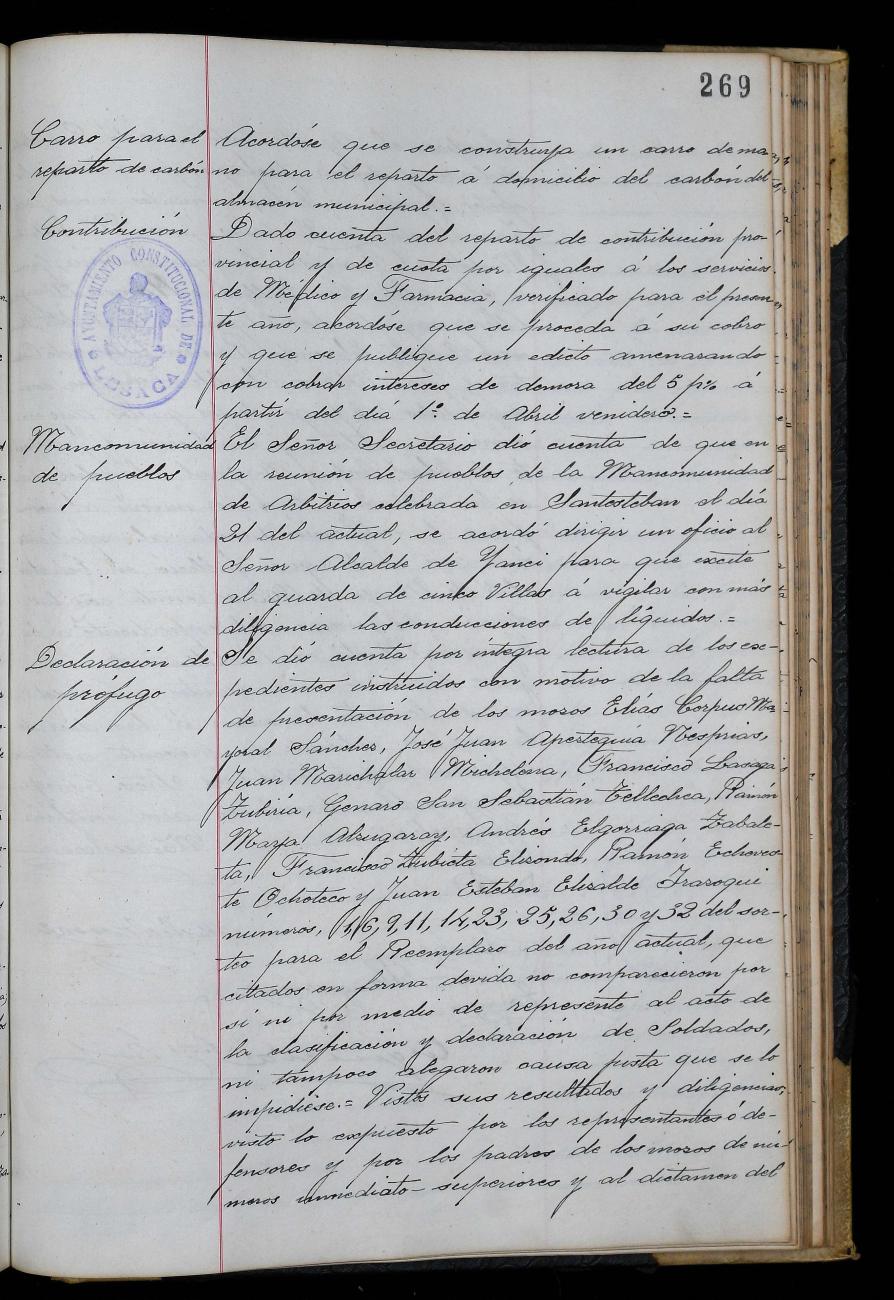 269
Carro para el
reparto de carbón
Acordóse que se construya un carro de ma-
no para el reparto á domicilio del carbón del
almacén municipal.=
Contribución
AYUNTAMIENTO CONSTITUCIONAL DE
LESACA
Dado cuenta del reparto de contribución pro-
vincial y de cuota por iguales á los servicios
de Médico y Farmacia, verificado para el presen-
te año, acordóse que se proceda á su cobro
y que se publique un edicto amenazando
con cobrar intereses de demora del 5 p% á
partir del diá 1º de Abril venidero.=
Mancomunidad
de pueblos
El Señor Secretario dió cuenta de que en
la reunión de pueblos de la Mancomunidad
de Arbitrios celebrada en Santesteban el diá
21 del actual, se acordó dirigir un oficio al
Señor Alcalde de Yanci para que excite
al guarda de cinco Villas á vigilar con más
diligencia las conducciones de líquidos.=
Declaración de
prófugo
Se dió cuenta por íntegra lectura de los ex-
pedientes instruidos con motivo de la falta
de presentación de los mozos Elías Corpus Ma-
yoral Sánchez, José Juan Apertegua Nesprias,
Juan Marichalar Michelena, Francisco Lasaga
Zubiria, Genaro San Sebastián Tellechea, Ramón
Maya Alzugaray, Andrés Elgorriaga Zabale-
ta, Francisco Zubieta Elizondo, Ramón Echeves-
te Ochoteco y Juan Esteban Elizalde Irazoqui
números, 6, 9, 11, 14, 23, 25, 26, 30 y 32 del sor-
teo para el Reemplazo del año actual, que
citados en forma devida no comparecieron por
sí ni por medio de represente al acto de
la clasificación y declaración de Soldados,
ni tampoco alegaron causa justa que se lo
impidiése.= Vistos sus resultados y diligencias,
visto lo expuesto por los representantes ó de-
fensores y por los padres de los mozos de nú-
meros inmediato-superiores y al dictamen del